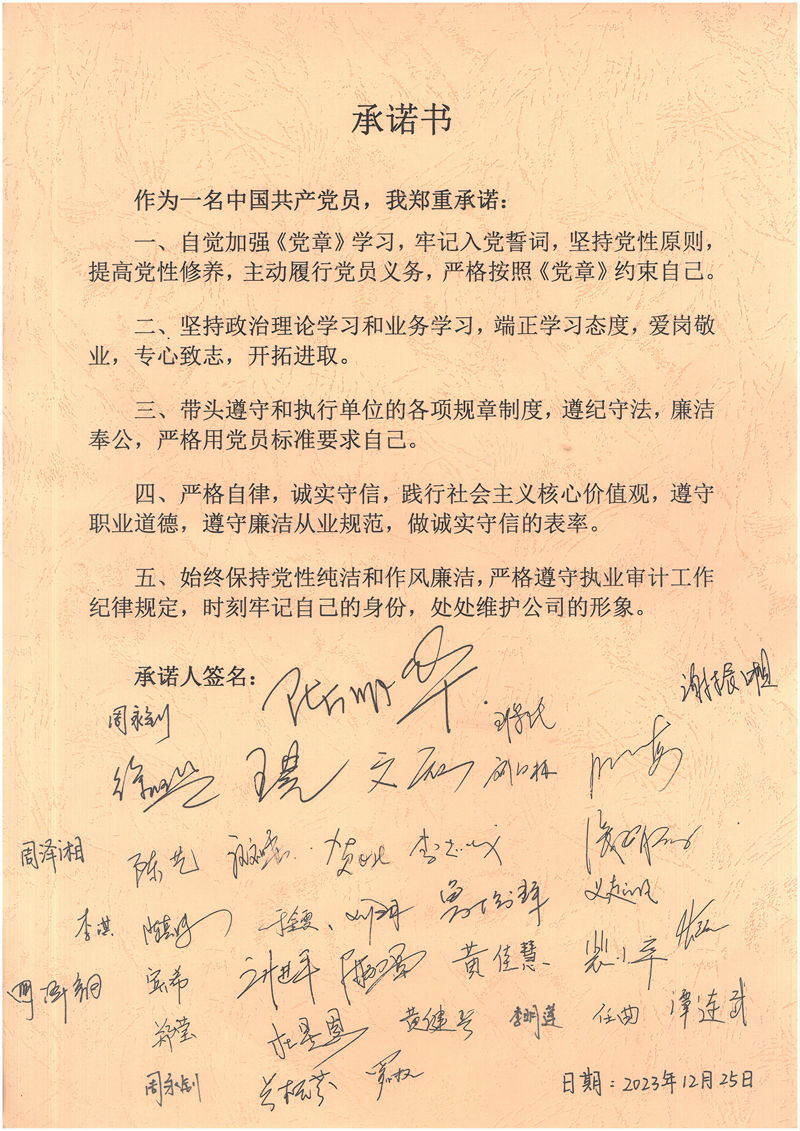 承诺书
作为一名中国共产党员，我郑重承诺：
一、自觉加强《党章》学习，牢记入党誓词，坚持党性原则，
提高党性修养，主动履行党员义务，严格按照《党章》约束自己。
二、坚持政治理论学习和业务学习，端正学习态度，爱岗敬
业，专心致志，开拓进取。
三、带头遵守和执行单位的各项规章制度，遵纪守法，廉洁
奉公，严格用党员标准要求自己。
四、严格自律，诚实守信，践行社会主义核心价值观，遵守
职业道德，遵守廉洁从业规范，做诚实守信的表率。
五、始终保持党性纯洁和作风廉洁，严格遵守执业审计工作
纪律规定，时刻牢记自己的身份，处处维护公司的形象。
承诺人签名：
周永剑
周泽湘 陈艺
李淇 黄佳慧
郑莹 黄健兵 李明莲 任曲 谭连武
周永剑
日期：2023年12月25日